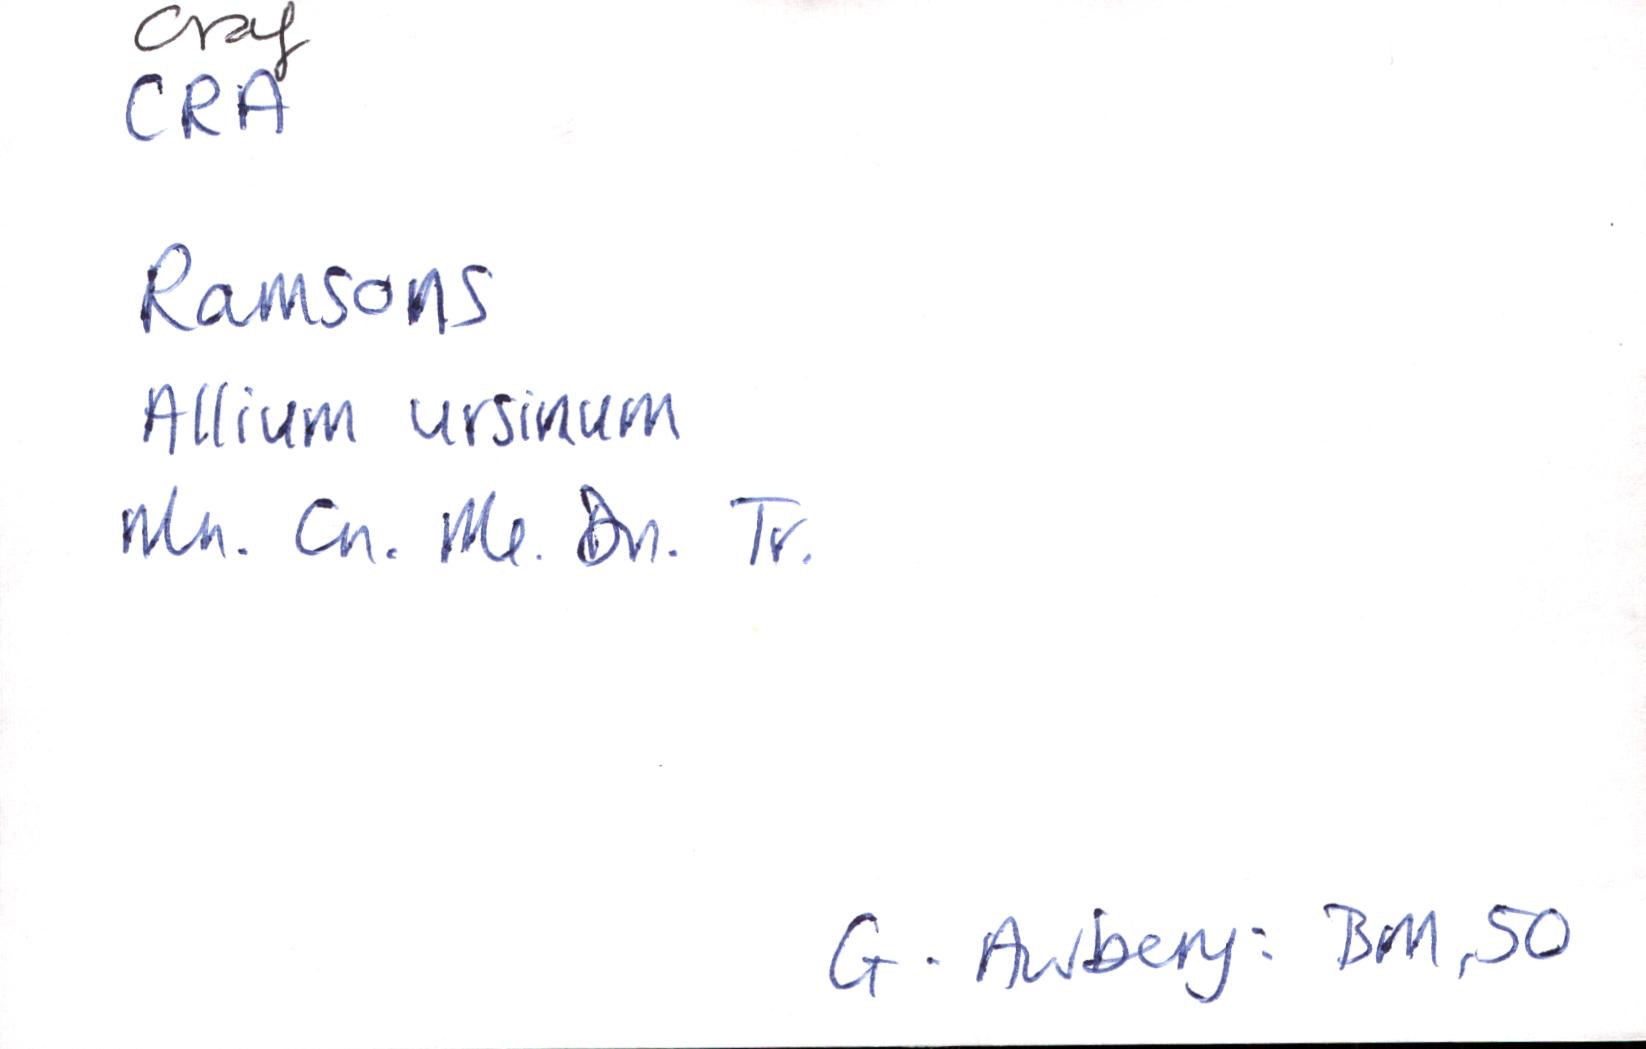 craf
CRA
Ramsons
Allium ursinum
Mn. Cn. Me. Dn. Tr.
G. Awbery: BM, 50